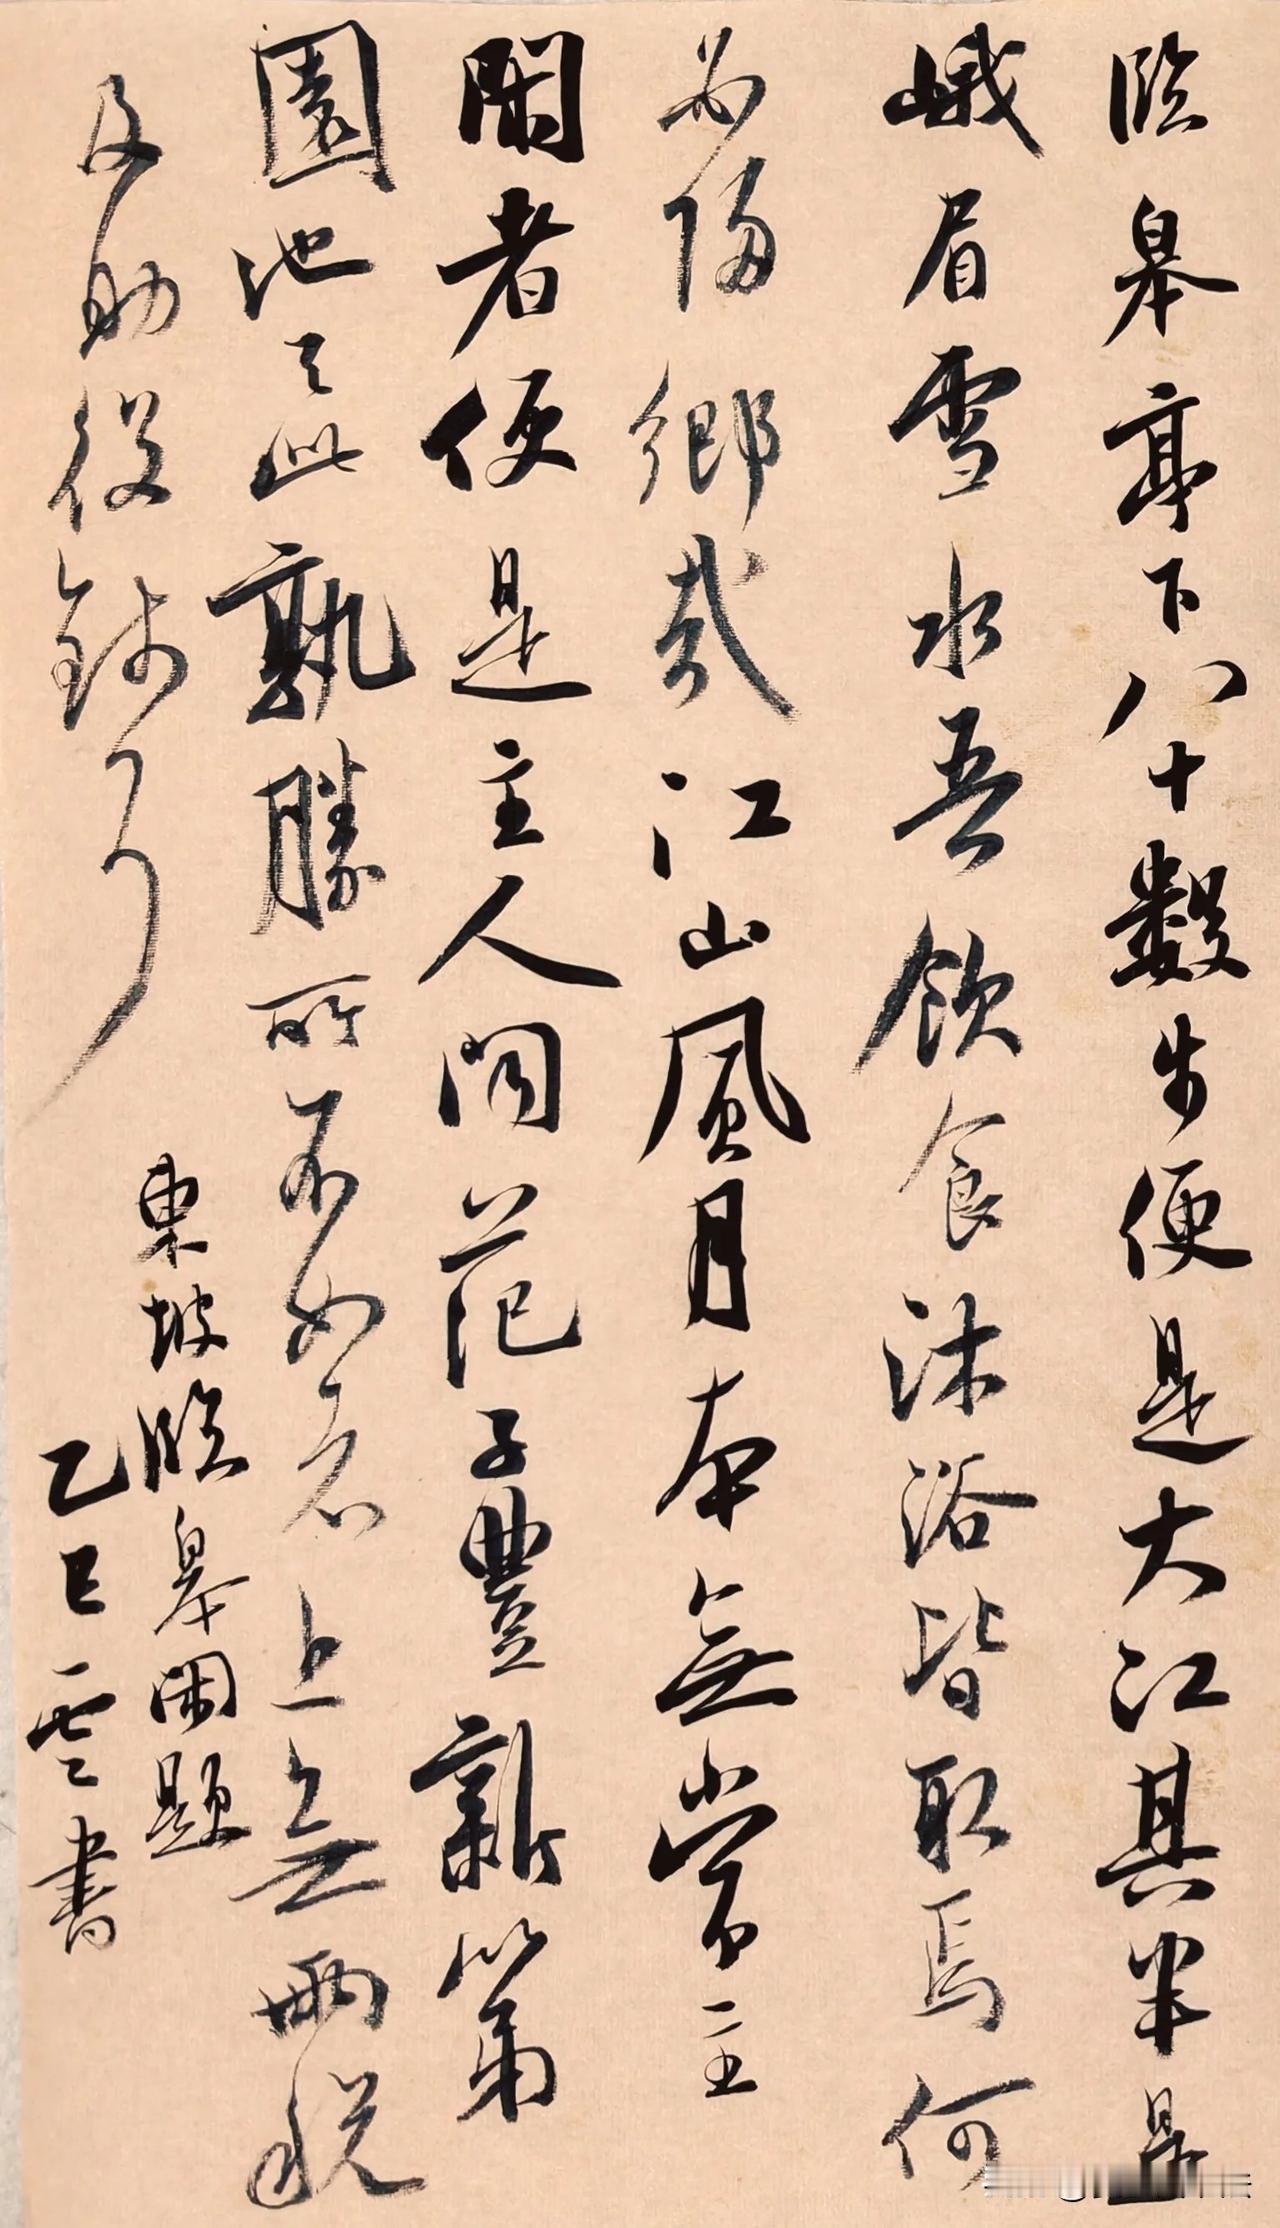 臨皋亭下八十數步便是大江其半是
峨眉雪水吾飲食沐浴皆取焉何
必歸鄉哉江山風月本無常主
閑者便是主人聞范子豐新第
園池与此孰勝所不如者上無兩稅
及助役錢耳
東坡臨皋閑題
乙巳雲書